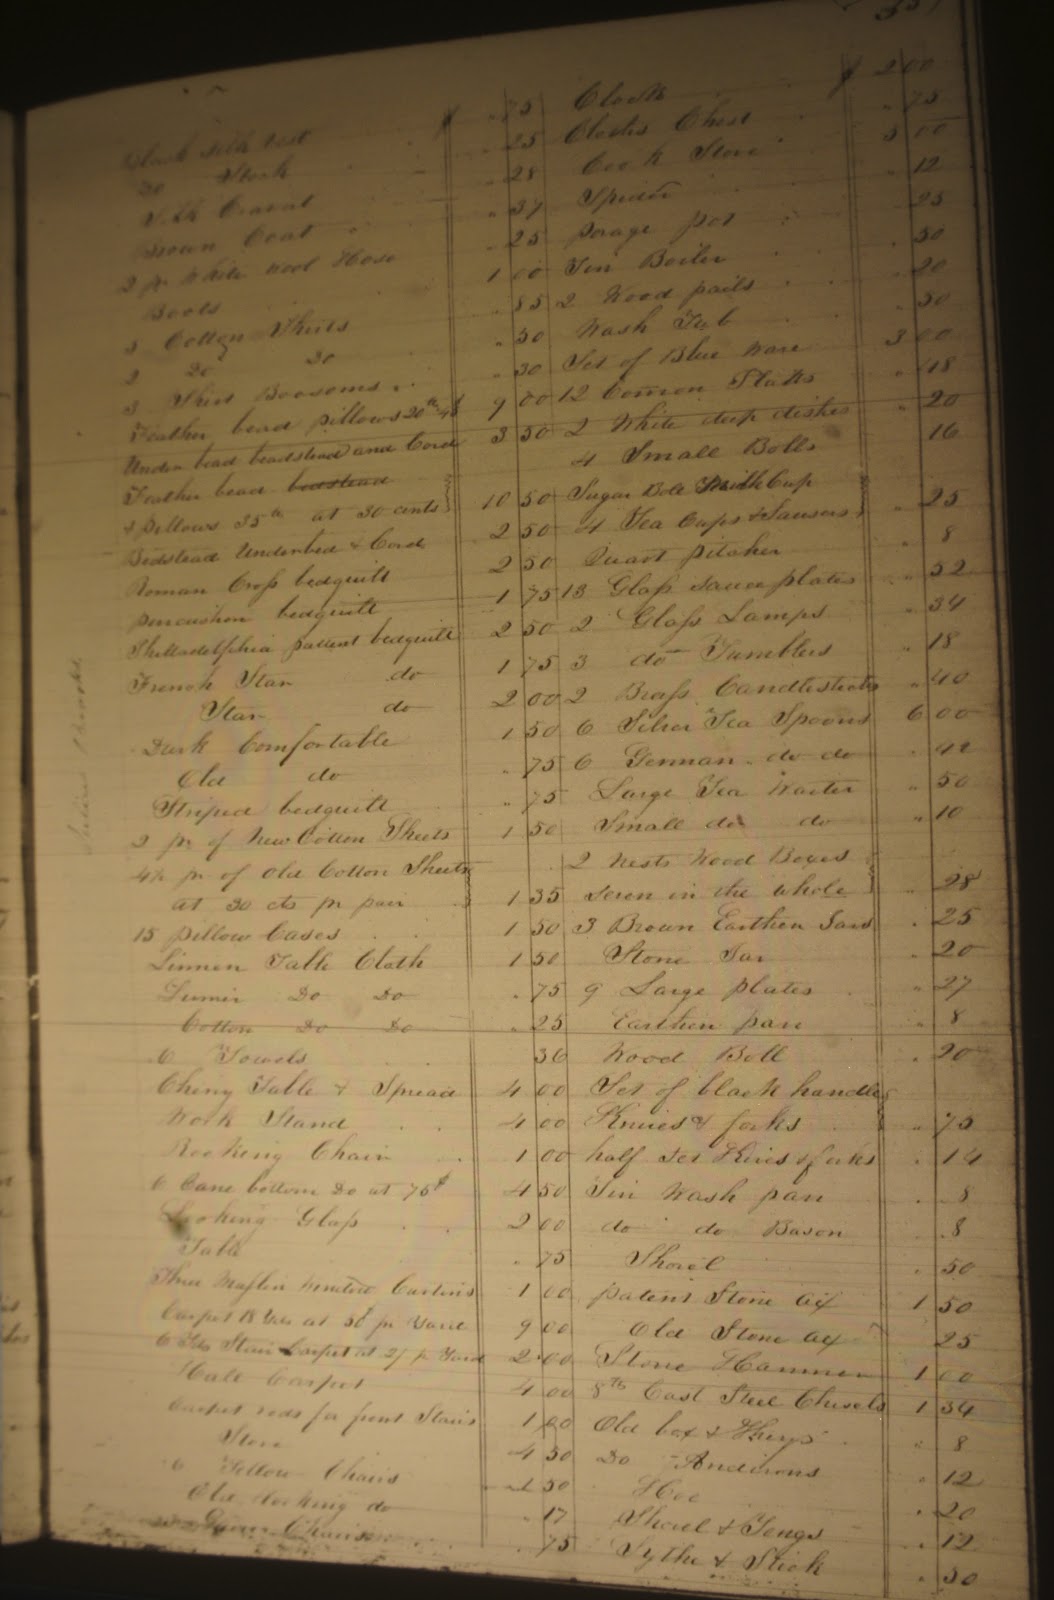 351
Black silk vest . $ . 75
Do Stock . 25
Silk Cravat . 28
Brown Coat . 37
2 pr White wool Hose . 25
Boots 1 00
3 Cotton Shirts . 85
2 Do Do . 50
3 Shirt Boosoms . 30
Feather bead pillows 20 9 00
Under bead beadstead and Cord 3 50
Feather bead bedstead
& pillows 35 lb at 30 cents 10 50
Bedstead Underbed & Cord 2 50
Roman Cross bedquilt 2 50
pincushion bedquilt 1 75
Philladelphia pattent bedquilt 2 50
French Star do 1 75
Star do 2 00
Dark Comfortable 1 50
Old do . 75
Striped bedquilt . 75
2 pr of New Cotton Sheets 1 50
4½ pr of Old Cotton Sheets
at 30 cts pr pair 1 35
15 pillow Cases 1 50
Linnen Table Cloth 1 50
Do Do . 75
Cotton Do Do . 25
6 Towels 36
Cherry Table & Spread 4 00
Work Stand 4 00
Rocking Chair 1 00
6 Cane bottom Do at 75 4 50
Looking Glass 2 00
Table . 75
Three Muslin Window Curtins 1 00
Carpet 18 Yds at 50 pr Yard 9 00
6 Yds Stair Carpet at pr Yard 2 00
Hall Carpet 4 00
Carpet rods for front Stairs 1 00
Stove 4 50
6 Yellow Chairs 50
Old Rocking do . 17
Chairs . 75
Clock $ 2 00
Clothes Chest . 75
Cook Stove 5 00
Spider . 12
porage pot . 25
Tin Boiler . 50
2 Wood pails . 20
Wash Tub . 50
Set of Blue Ware 3 00
12 Common Plates . 48
2 White deep dishes . 20
4 Small Bolls 16
Sugar Bole Cup
4 Tea Cups & Sausers . 25
Quart pitcher . 8
13 Glass sauce plates . 52
2 Glass Lamps . 34
3 do Tumblers . 18
2 Brass Candlesticks . 40
6 Silver Tea Spoons 6 00
6 German do do . 42
Large Tea Waiter . 50
Small do do . 10
2 Nests Wood Boxes
seven in the whole . 28
3 Brown Earthen Jars . 25
Stone Jar . 20
9 Large plates . 27
Earthen pan . 8
Wood Boll . 20
Set of black handle
Knives & forks . 75
half set Knives & forks . 14
Tin Wash pan . 8
do do Bason . 8
Shovel . 50
patent Stone ax 1 50
Old Stone ax 25
Stone Hammer 1 00
8 lb Cast Steel Chisels 1 34
Old box & . 8
Do Andirons . 12
Hoe . 20
Shovel & Tongs . 12
Sythe & Stick . 50